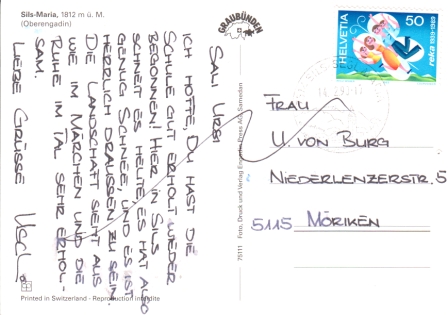 Sils-Maria, 1812 m ü. M.
(Oberengadin)
GRAUBÜNDEN
SALI URSI
ICH HOFFE, DU HAST DIE
SCHULE GUT ERHOLT WIEDER
BEGONNEN! HIER IN SILS
SCHNEIT ES HEUTE, ES HAT ALSO
GENUG SCHNEE, UND ES IST
HERRLICH DRAUSSEN ZU SEIN.
DIE LANDSCHAFT SIEHT AUS
WIE IM MÄRCHEN UND DIE
RUHE IM TAL SEHR ERHOL-
SAM.
LIEBE GRÜSSE
HELVETIA 50
reka
FRAU
U. VON BURG
NIEDERLENZERSTR. 5
5115 MÖRIKEN
75111 Foto, Druck und Verlag Engadin Press AG, Samedan
Printed in Switzerland - Reproduction interdite